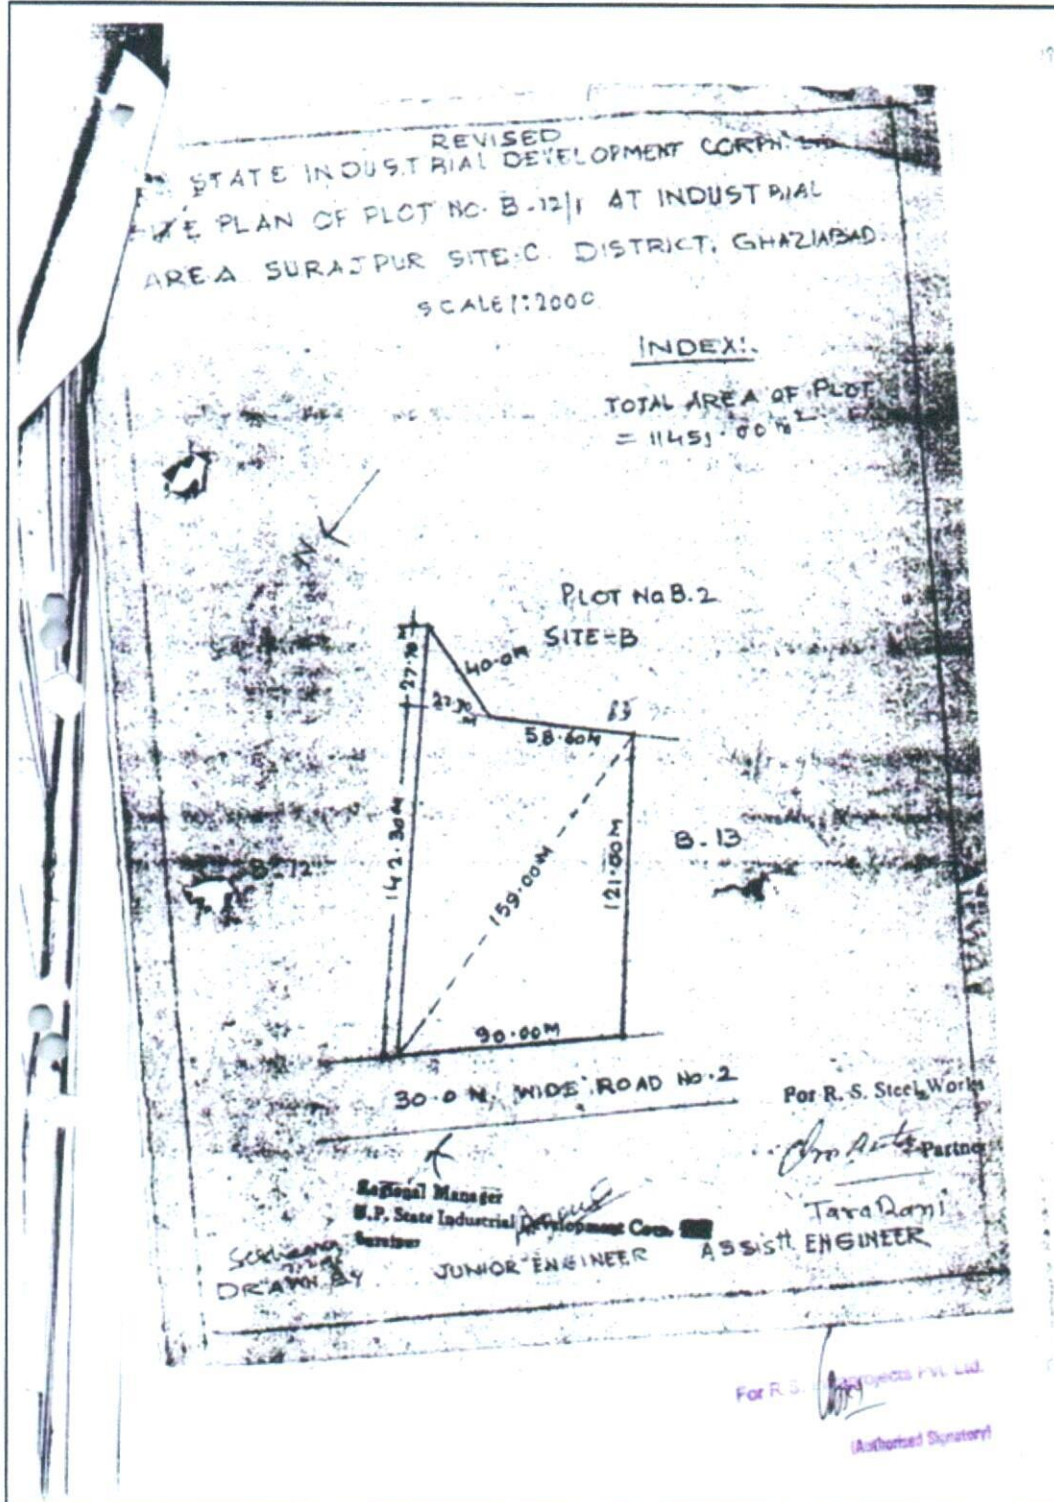 REVISED
STATE INDUSTRIAL DEVELOPMENT CORPN. LTD
PLAN OF PLOT NO. B-12/1 AT INDUSTRIAL
AREA SURAJPUR SITE-C DISTRICT, GHAZIABAD.
SCALE 1:2000
INDEX:-
TOTAL AREA OF PLOT
= 11451.00 M2
N
PLOT No B.2
SITE-B
27.70
40.0M
27.70
58.60M
142.30M
159.00M
121.00M
B-12
B-13
90.00M
30.0 M. WIDE ROAD NO.2
For R. S. Steel Works
Partner
Regional Manager
U.P. State Industrial Development Corp.
Surajpur
Tara Rani
DRAWN BY
JUNIOR ENGINEER
ASSISTT. ENGINEER
For R.S. Pvt. Ltd.
(Authorised Signatory)